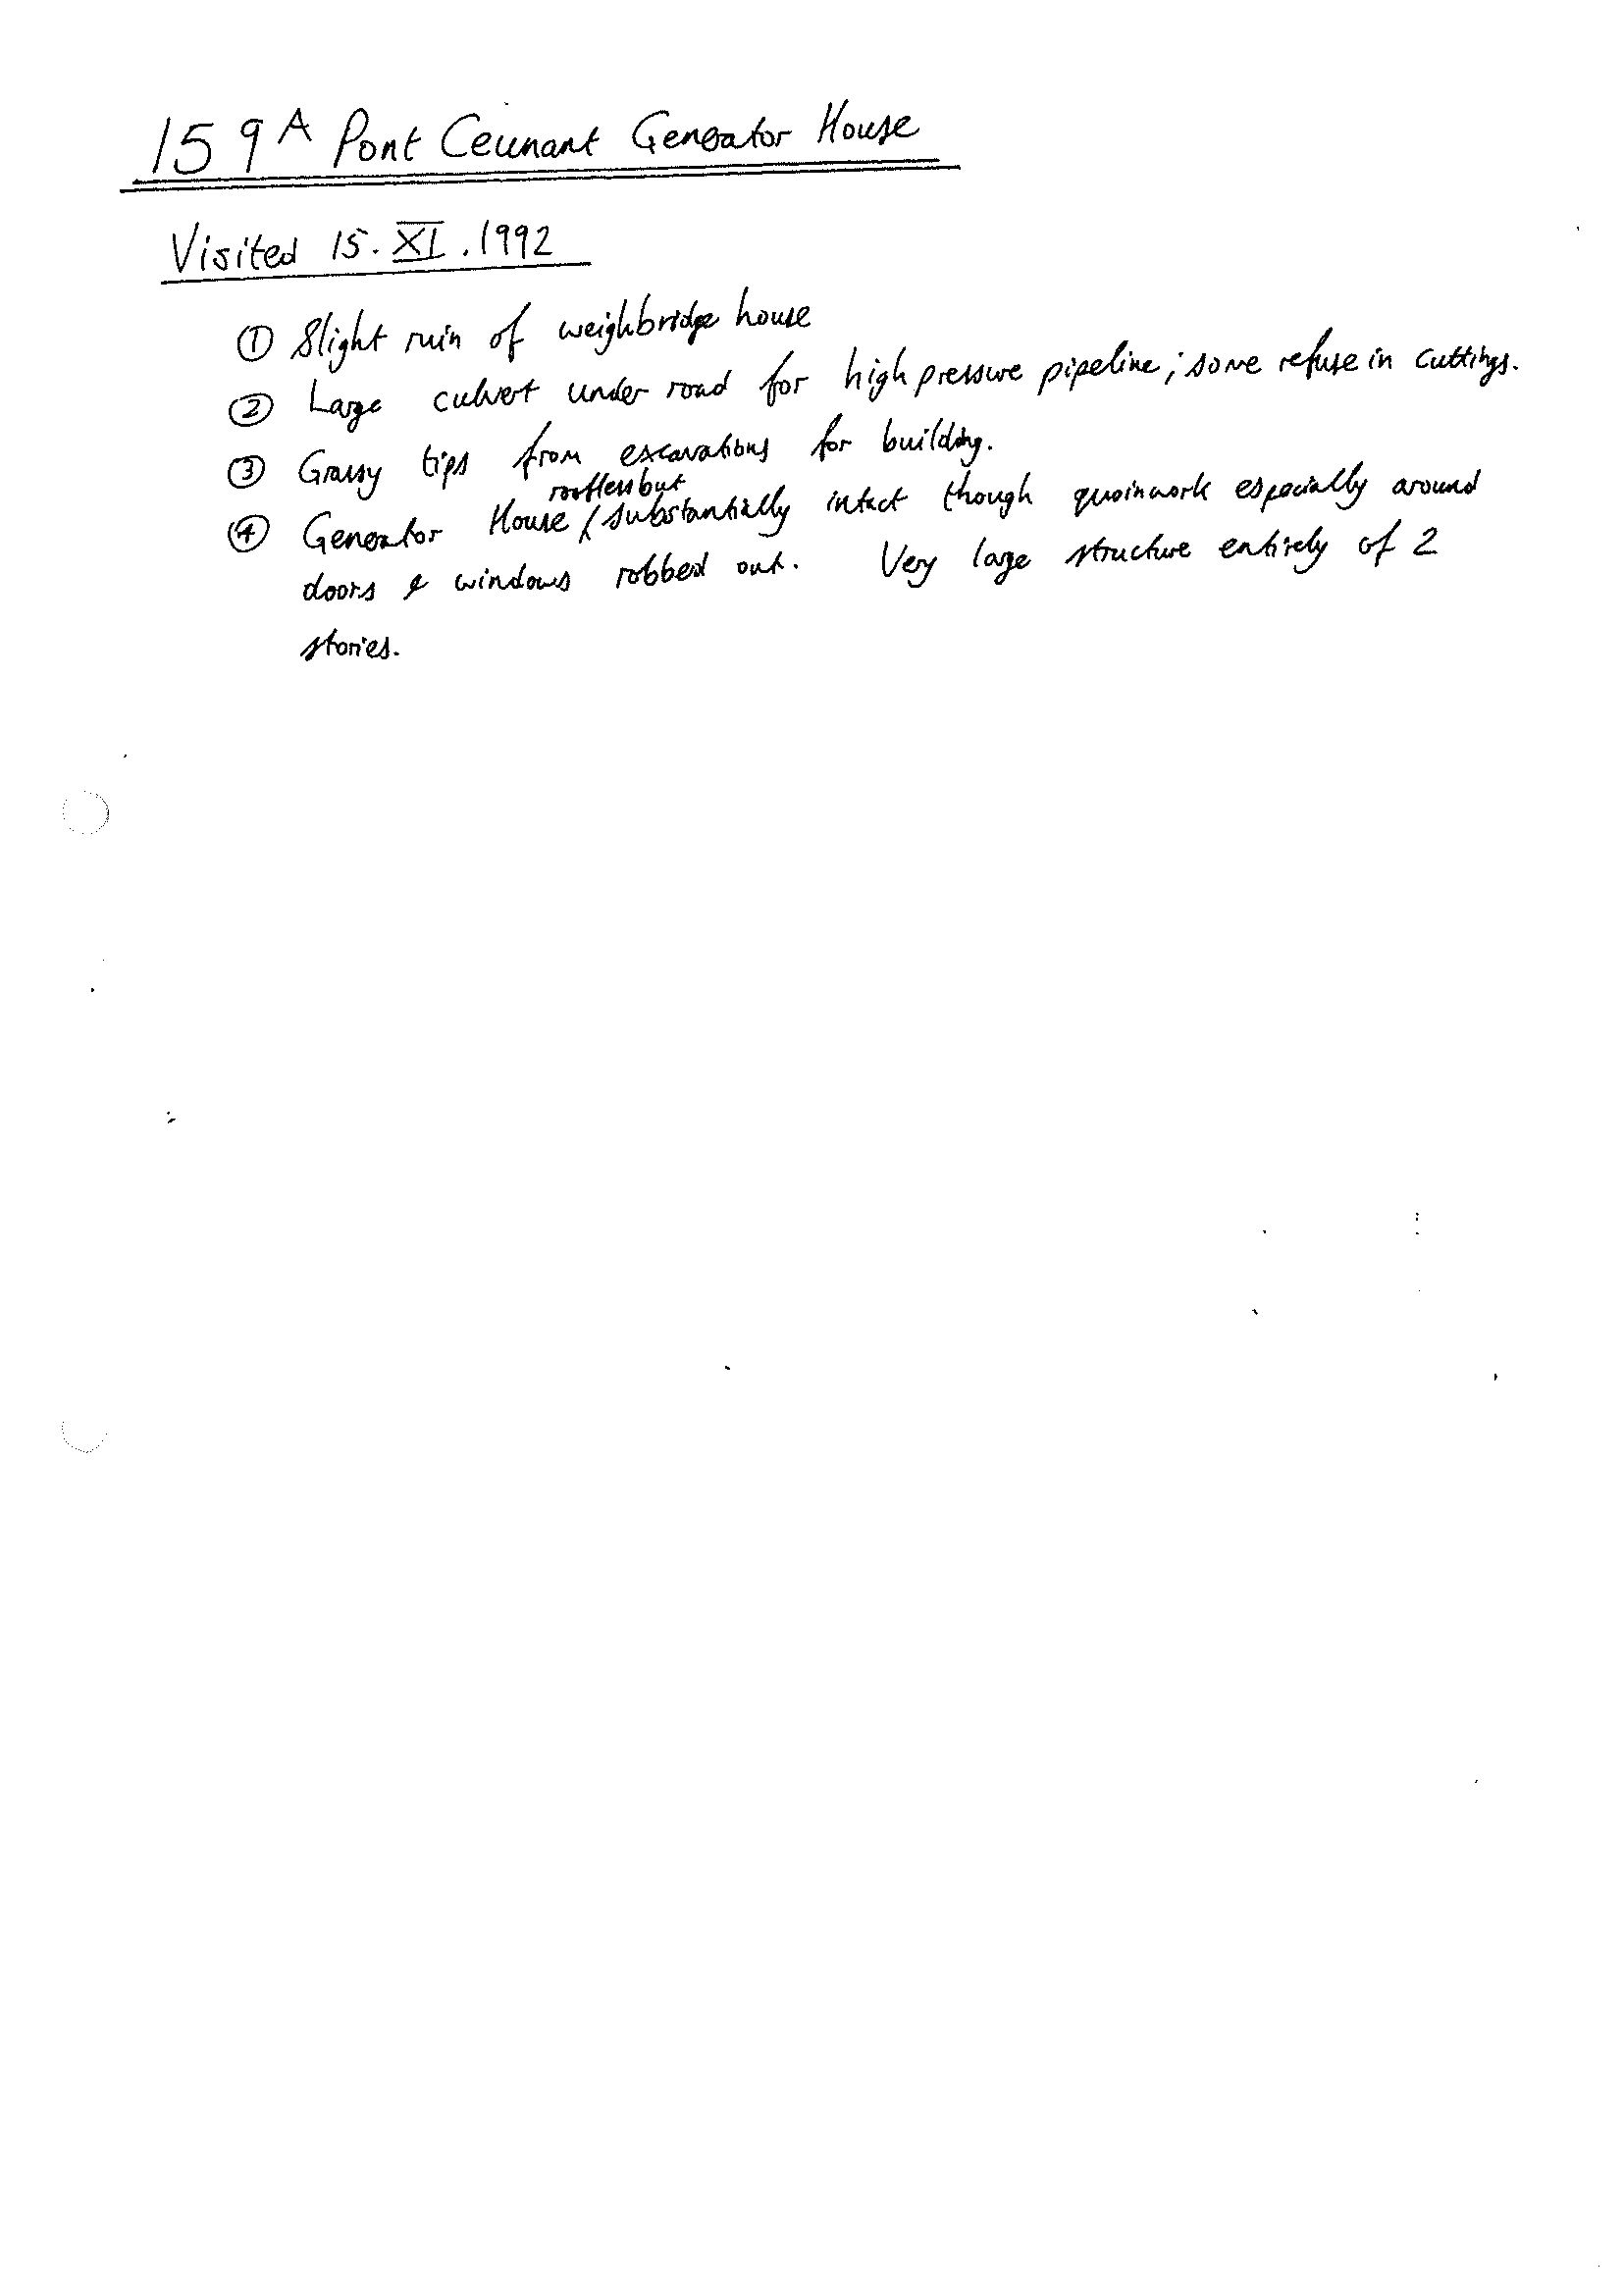 159A Pont Ceunant Generator House
Visited 15.XI.1992
① Slight ruin of weighbridge house
② Large culvert under road for high pressure pipeline; some refuse in cuttings.
③ Grassy tips from excavations for building.
roofless but
④ Generator House / substantially intact though quoinwork especially around
doors & windows robbed out. Very large structure entirely of 2
stories.